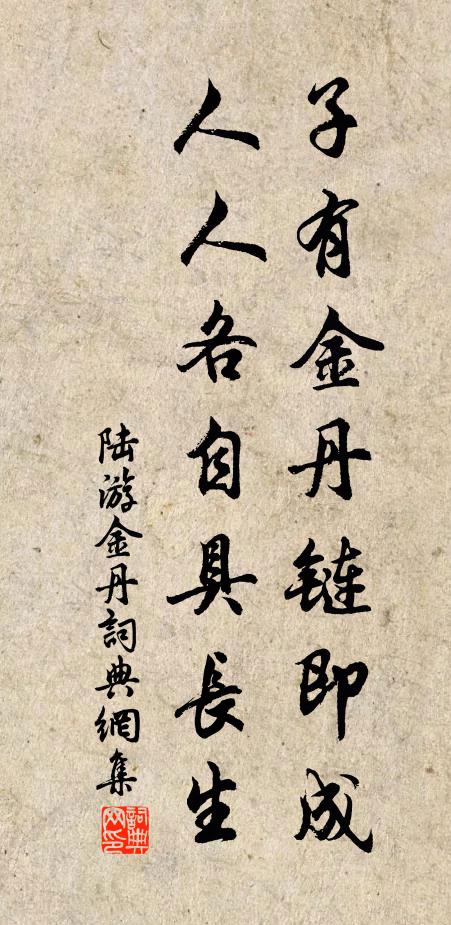 子有金丹鏈即成
人人各自具長生
陆游金丹詞典網集
詞典
网印